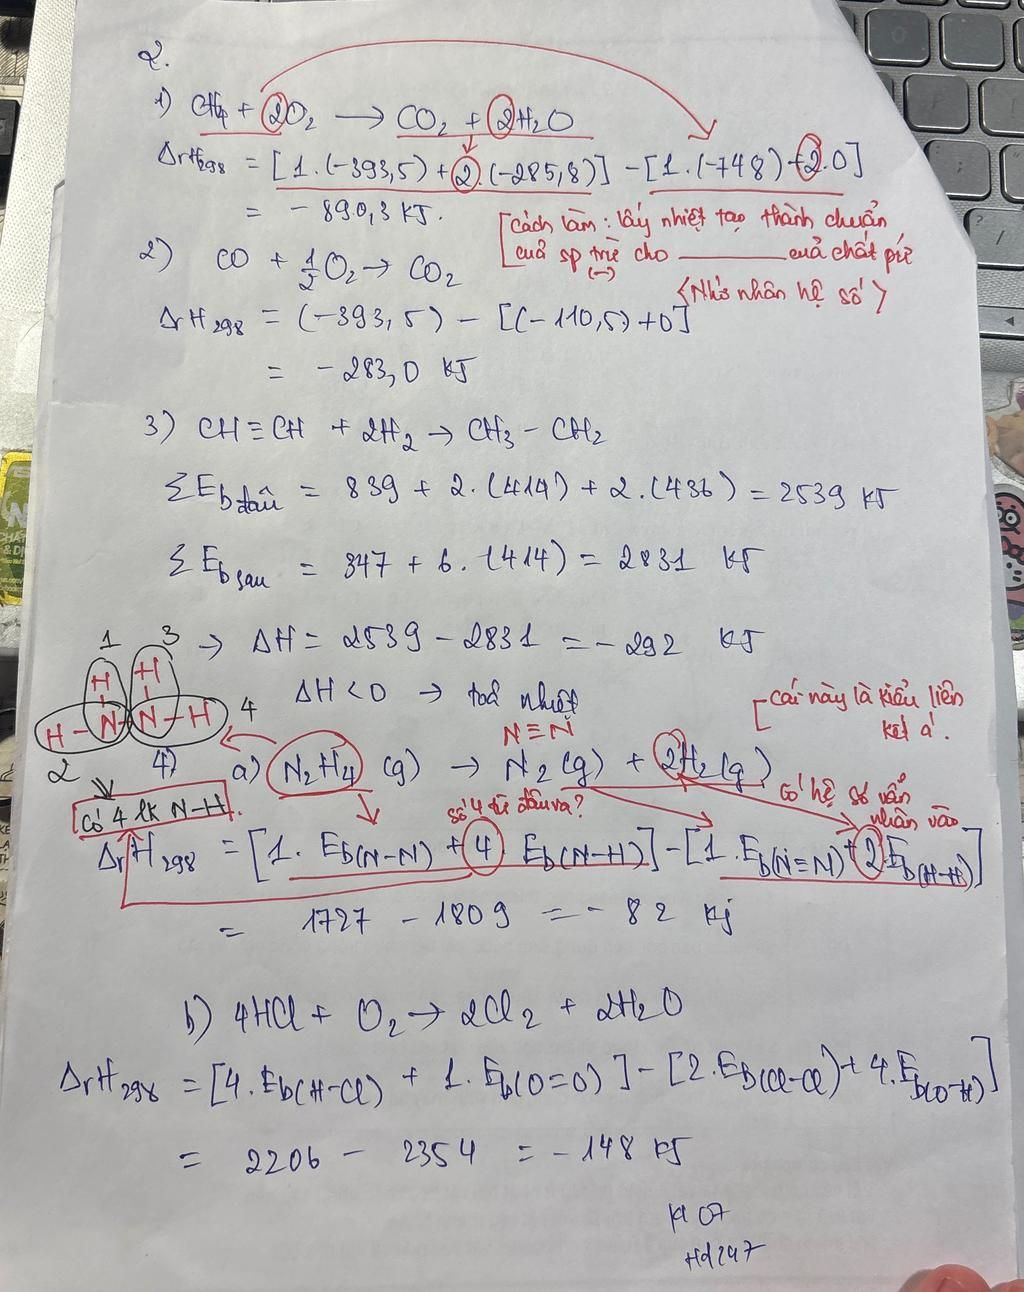 2.
1) CH4 + 2O2 → CO2 + 2H2O
ΔrH298 = [1.(-393,5) + 2.(-285,8)] - [1.(-748) + 2.0]
= - 890,3 KJ.
[Cách làm: lấy nhiệt tạo thành chuẩn
của sp trừ cho ——— của chất pứ
(-)
<Nhớ nhân hệ số>
2) CO + 1/2 O2 → CO2
ΔrH298 = (-393,5) - [(-110,5) + 0]
= - 283,0 KJ
3) CH ≡ CH + 2H2 → CH3 - CH2
ΣEb đầu = 839 + 2.(414) + 2.(436) = 2539 KJ
ΣEb sau = 347 + 6.(414) = 2831 KJ
→ ΔH = 2539 - 2831 = - 292 KJ
ΔH < 0 → toả nhiệt
1 3
H H
H - N - N - H 4
2
Có 4 lk N-H
[cái này là kiểu liên
kết á.
N≡N
4) a) N2H4 (g) → N2(g) + 2H2(g)
số 4 từ đâu ra?
Có hệ số vẫn
nhân vào
ΔrH298 = [1. Eb(N-N) + 4 Eb(N-H)] - [1. Eb(N≡N) + 2Eb(H-H)]
= 1727 - 1809 = - 82 Kj
b) 4HCl + O2 → 2Cl2 + 2H2O
ΔrH298 = [4.Eb(H-Cl) + 1.Eb(O=O)] - [2.Eb(Cl-Cl) + 4.Eb(O-H)]
= 2206 - 2354 = - 148 KJ
07
Hd247